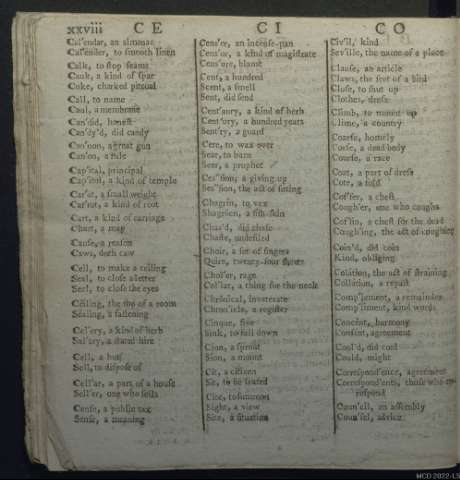 xxviii C E C I C O
Cal'endar, an almanac
Cal'ender, to smooth linen
Calk, to stop seams
Cauk, a kind of spar
Coke, charked pitcoal
Call, to name
Caul, a membrane
Can'did, honest
Can'dy'd, did candy
Can'non, a great gun
Can'on, a rule
Cap'ital, principal
Cap'itol, a kind of temple
Car'at, a small weight
Car'rot, a kind of root
Cart, a kind of carriage
Chart, a map
Cause, a reason
Caws, doth caw
Ceil, to make a ceiling
Seal, to close a letter
Seel, to close the eyes
Ceiling, the top of a room
Sealing, a fastening
Cel'ery, a kind of herb
Sal'ary, a stated hire
Cell, a hut
Sell, to dispose of
Cell'ar, a part of a house
Sell'er, one who sells
Cense, a public tax
Sense, a meaning
Cens'er, an incense-pan
Cens'or, a kind of magistrate
Cens'ure, blame
Cent, a hundred
Scent, a smell
Sent, did send
Cent'aury, a kind of herb
Cent'ury, a hundred years
Sent'ry, a guard
Cere, to wax over
Sear, to burn
Seer, a prophet
Ces'sion, a giving up
Ses'sion, the act of sitting
Chagrin, to vex
Shagreen, a fish-skin
Chas'd, did chase
Chaste, undefiled
Choir, a set of singers
Quire, twenty-four sheets
Chol'er, rage
Col'lar, a thing for the neck
Chron'ical, inveterate
Chron'icle, a register
Cinque, five
Sink, to fall down
Cion, a sprout
Sion, a mount
Cit, a citizen
Sit, to be seated
Cite, to summon
Sight, a view
Site, a situation
Civ'il, kind
Sev'ille, the name of a place
Clause, an article
Claws, the feet of a bird
Close, to shut up
Clothes, dress
Climb, to mount up
Clime, a country
Coarse, homely
Corse, a dead body
Course, a race
Coat, a part of dress
Cote, a fold
Cof'fer, a chest
Cough'er, one who coughs
Cof'fin, a chest for the dead
Cough'ing, the act of coughing
Coin'd, did coin
Kind, obliging
Colation, the act of straining
Collation, a repast
Comp'lement, a remainder
Comp'liment, kind words
Concent, harmony
Consent, agreement
Cool'd, did cool
Could, might
Correspond'ence, agreement
Correspond'ents, those who cor-
respond
Coun'cil, an assembly
Coun'sel, advice